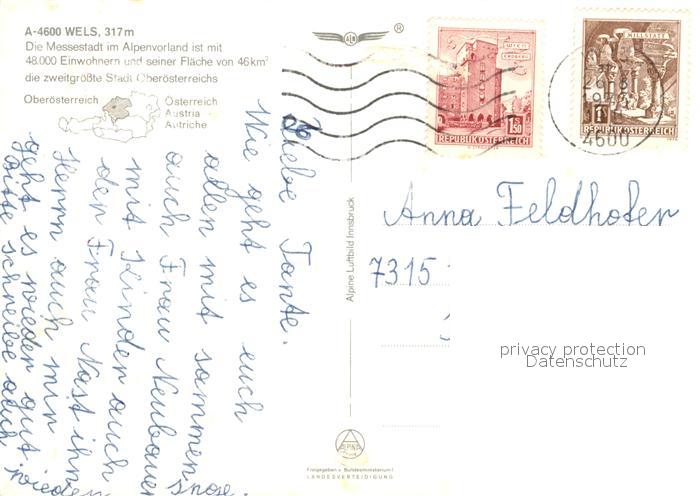 A-4600 WELS, 317m
Die Messestadt im Alpenvorland ist mit
48.000 Einwohnern und seiner Fläche von 46 km²
die zweitgrößte Stadt Oberösterreichs
Oberösterreich
Österreich
Austria
Autriche
ALB
®
WIEN
ERDBERG
1.50
REPUBLIK ÖSTERREICH
MILLSTATT
1
REPUBLIK ÖSTERREICH
4600
Liebe Tante.
Wie geht es euch
allen mit sammen
auch Frau Neubauer
mit Kinder auch
der Frau Nast ihn
Herrn auch mir
geht es wieder gut
bitte schreibe auch wieder
Alpine Luftbild Innsbruck
Anna Feldhofer
7315
privacy protection
Datenschutz
ALPINE
Freigegeben v. Bundesministerium f.
LANDESVERTEIDIGUNG